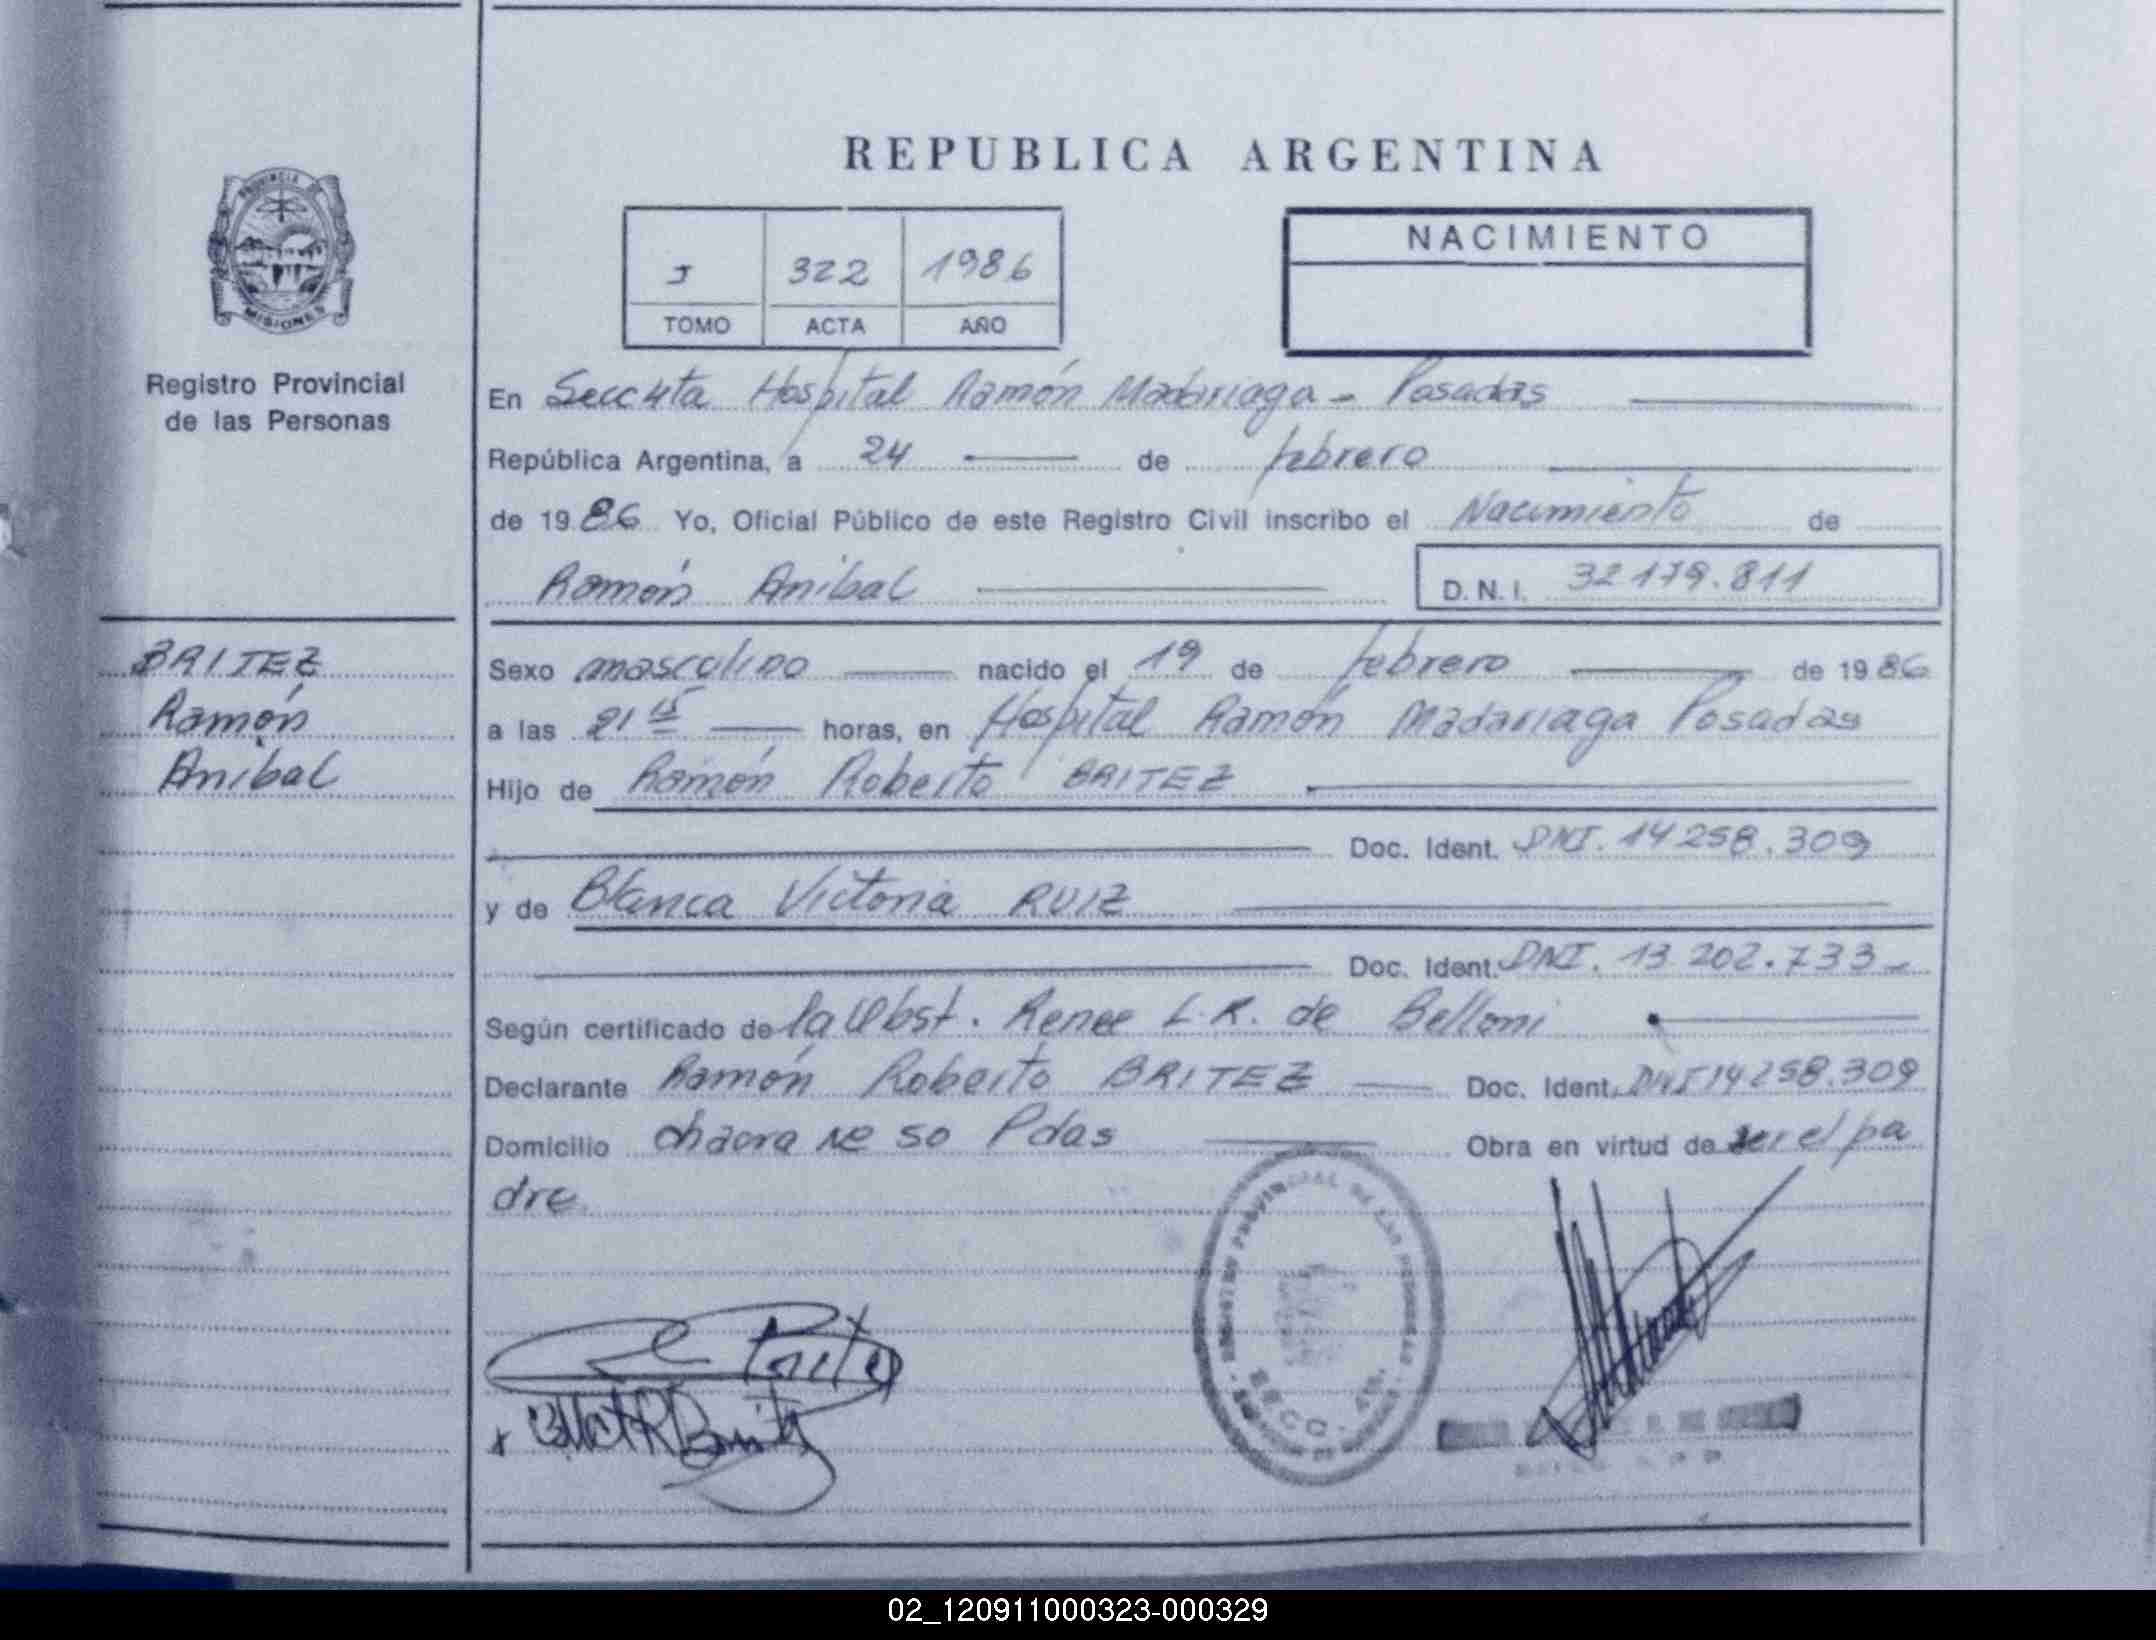 REPUBLICA ARGENTINA
PROVINCIA DE
MISIONES
Registro Provincial
de las Personas
J 322 1986
TOMO ACTA AÑO
NACIMIENTO
En Secc 4ta Hospital Ramón Madariaga - Posadas
República Argentina, a 24 de febrero
de 1986 Yo, Oficial Público de este Registro Civil inscribo el Nacimiento de
Ramón Anibal D.N.I. 32179.811
BRITEZ
Ramón
Anibal
Sexo masculino nacido el 19 de febrero de 1986
a las 21 15 horas, en Hospital Ramón Madariaga Posadas
Hijo de Ramón Roberto BRITEZ
Doc. Ident. DNI. 14258.309
y de Blanca Victoria RUIZ
Doc. Ident. DNI. 13 202.733-
Según certificado de la Obst. Renee L.R. de Belloni
Declarante Ramón Roberto BRITEZ Doc. Ident. DNI 14258.309
Domicilio chacra 50 Pdas Obra en virtud de ser el pa
dre.
REGISTRO PROVINCIAL DE LAS PERSONAS
SECC. 4ta.
02_120911000323-000329